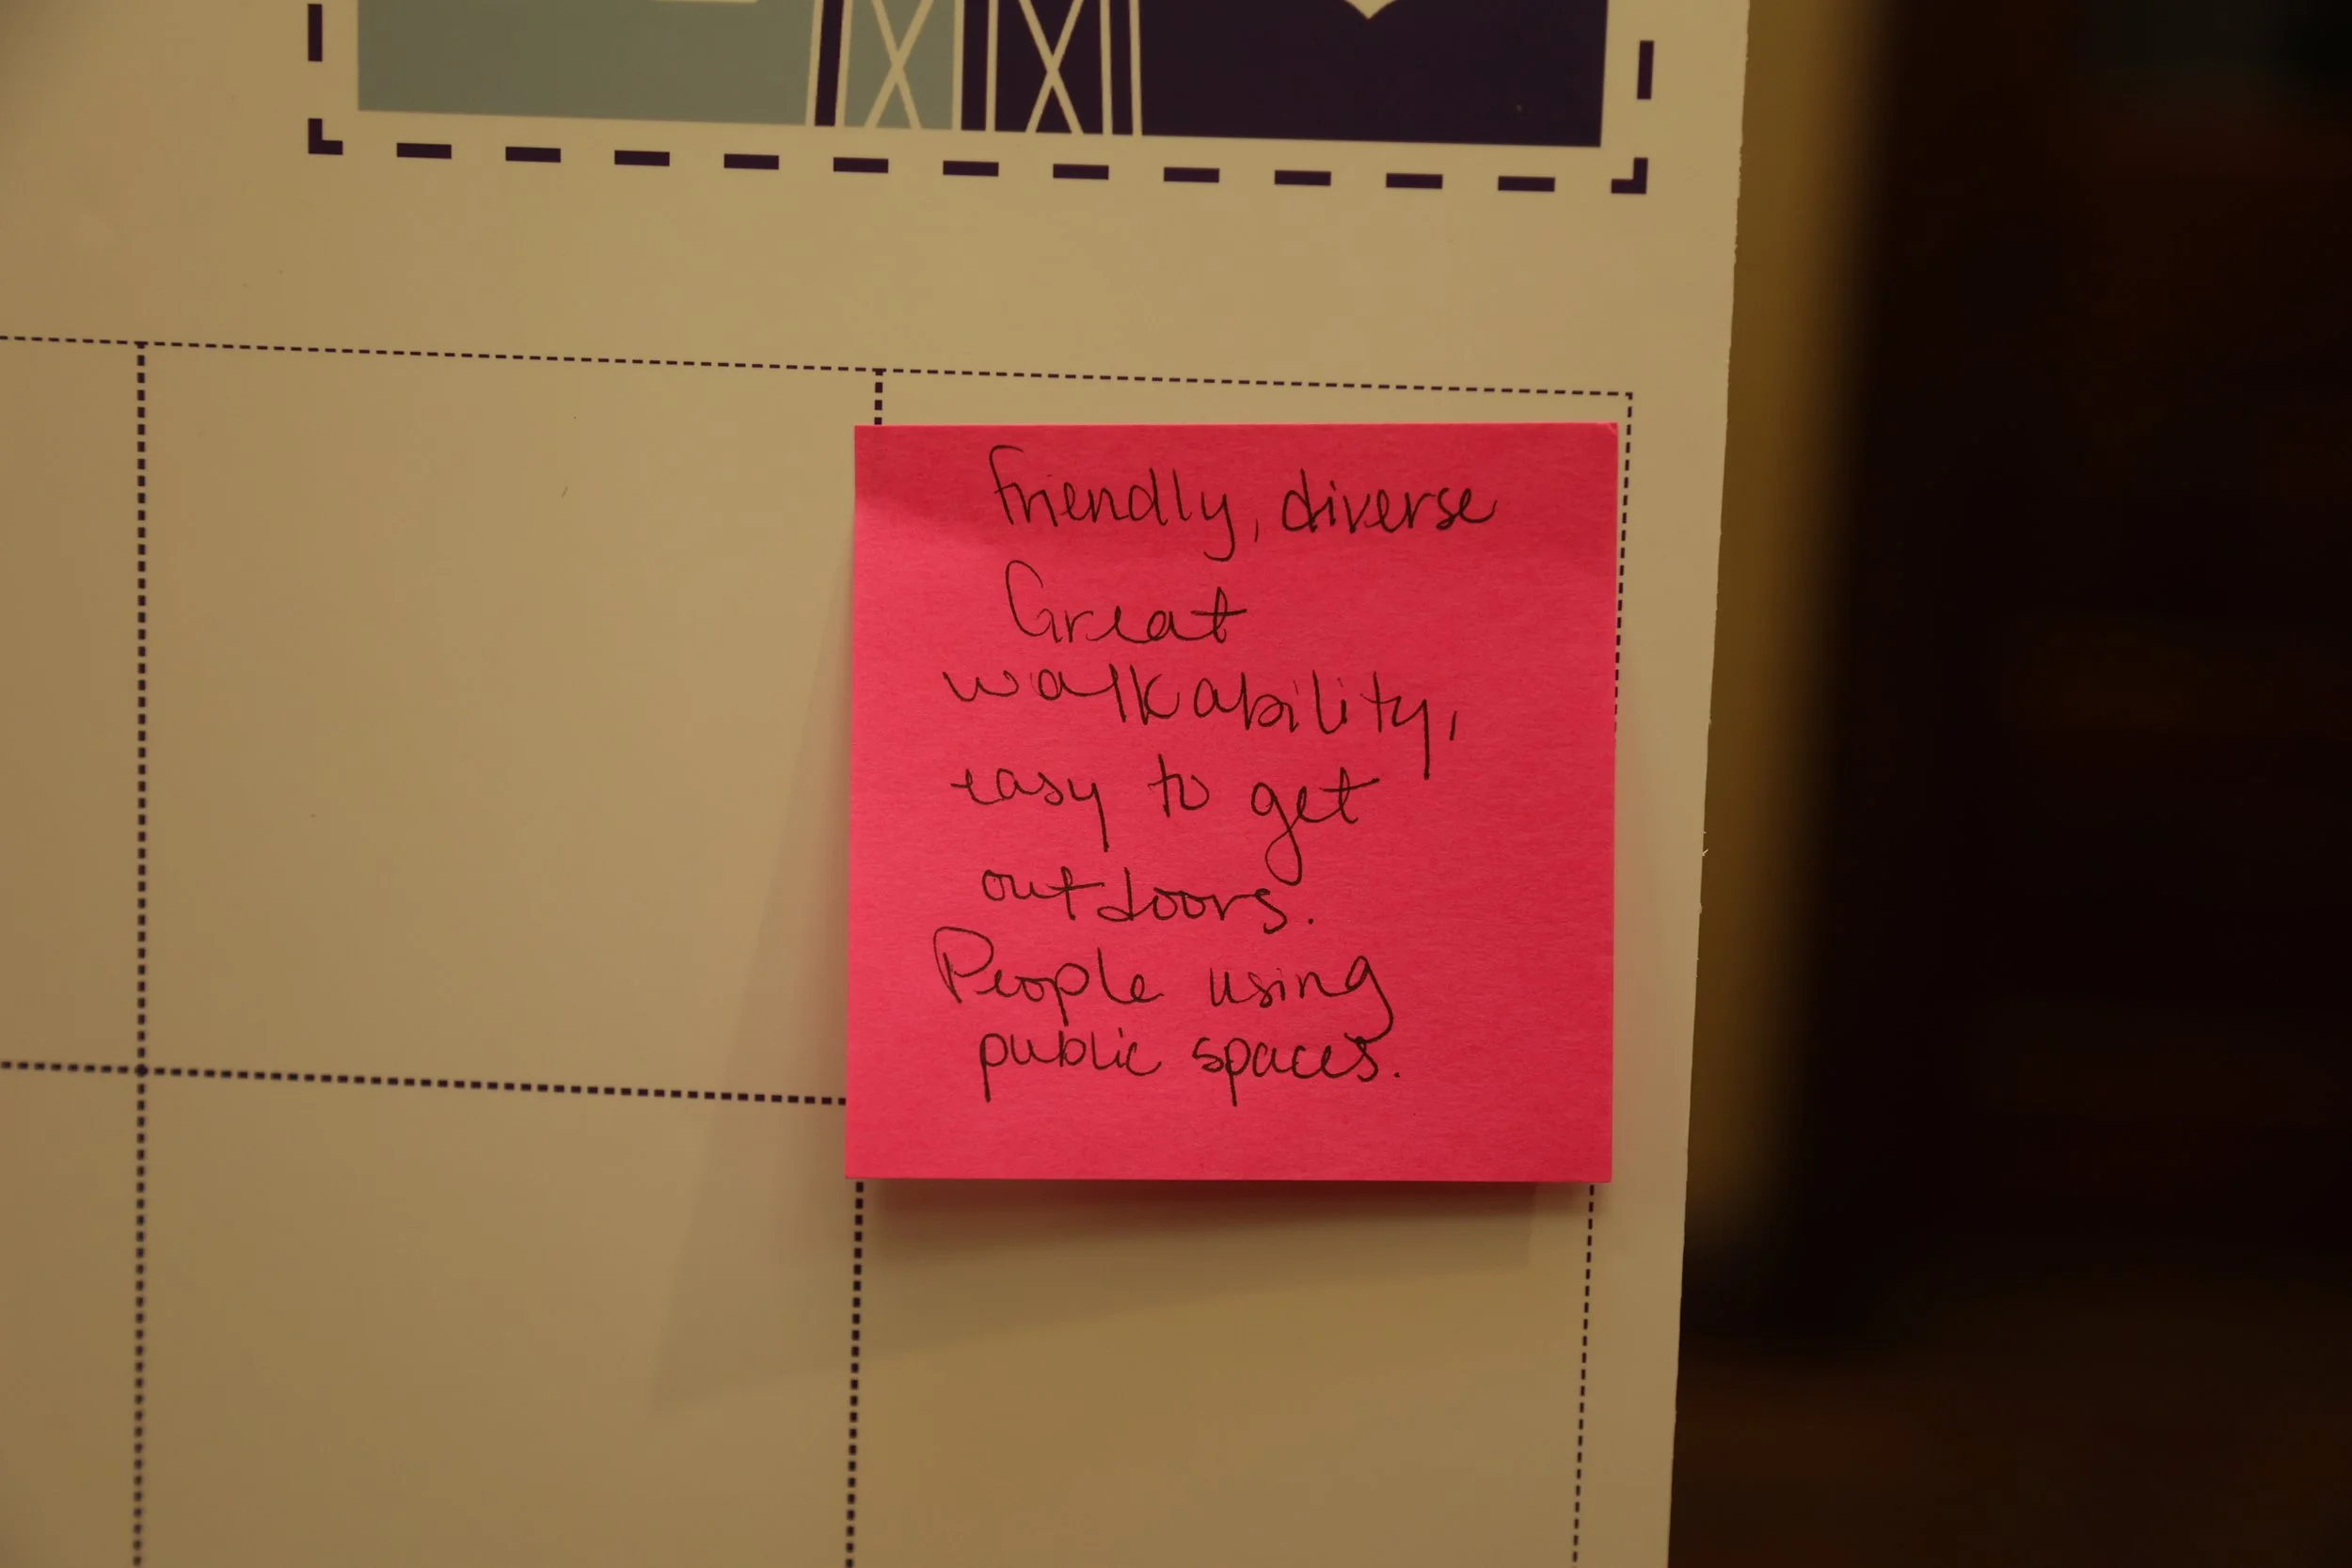 Friendly, diverse
Great
walkability,
easy to get
outdoors.
People using
public spaces.